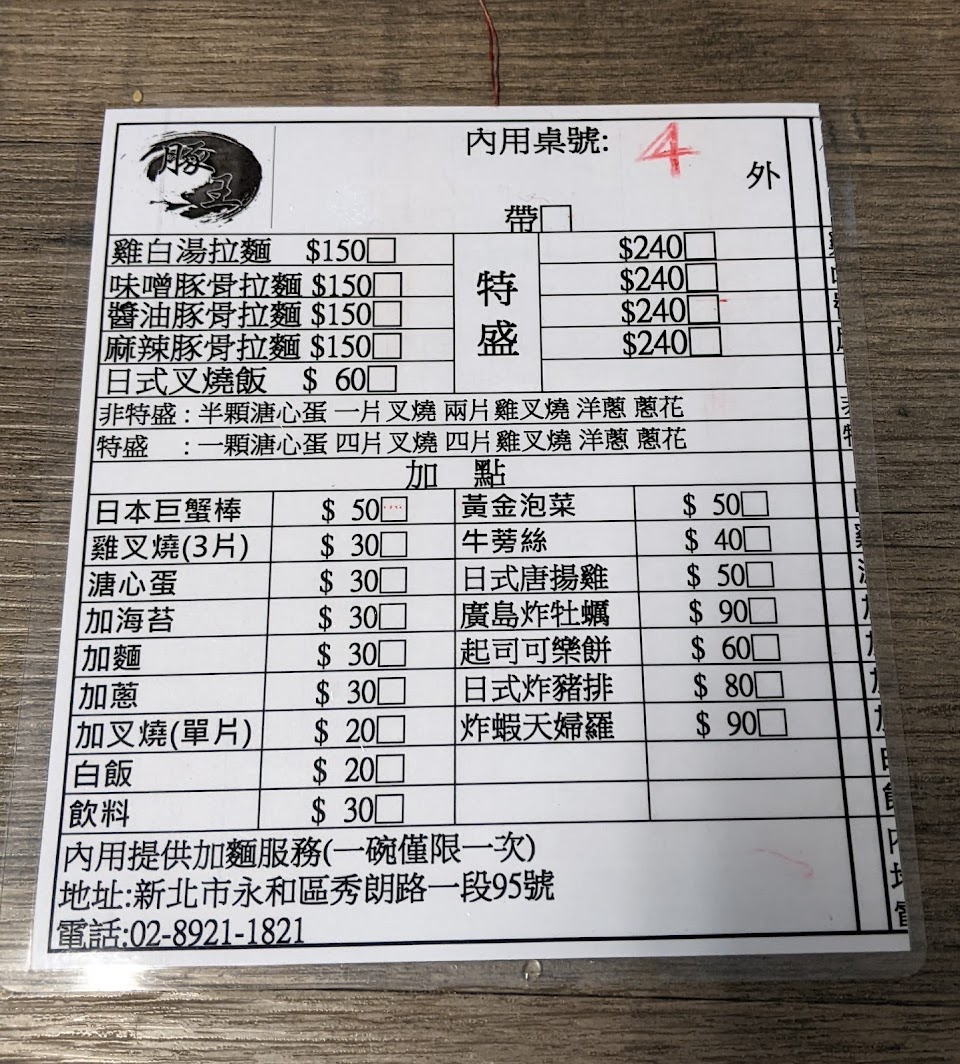 豚王
內用桌號: 4
外
帶□
雞白湯拉麵 $150□ 特盛 $240□
味噌豚骨拉麵 $150□ $240□
醬油豚骨拉麵 $150□ $240□
麻辣豚骨拉麵 $150□ $240□
日式叉燒飯 $ 60□
非特盛:半顆溏心蛋 一片叉燒 兩片雞叉燒 洋蔥 蔥花
特盛 :一顆溏心蛋 四片叉燒 四片雞叉燒 洋蔥 蔥花
加 點
日本巨蟹棒 $ 50□ 黃金泡菜 $ 50□
雞叉燒(3片) $ 30□ 牛蒡絲 $ 40□
溏心蛋 $ 30□ 日式唐揚雞 $ 50□
加海苔 $ 30□ 廣島炸牡蠣 $ 90□
加麵 $ 30□ 起司可樂餅 $ 60□
加蔥 $ 30□ 日式炸豬排 $ 80□
加叉燒(單片) $ 20□ 炸蝦天婦羅 $ 90□
白飯 $ 20□
飲料 $ 30□
內用提供加麵服務(一碗僅限一次)
地址:新北市永和區秀朗路一段95號
電話:02-8921-1821